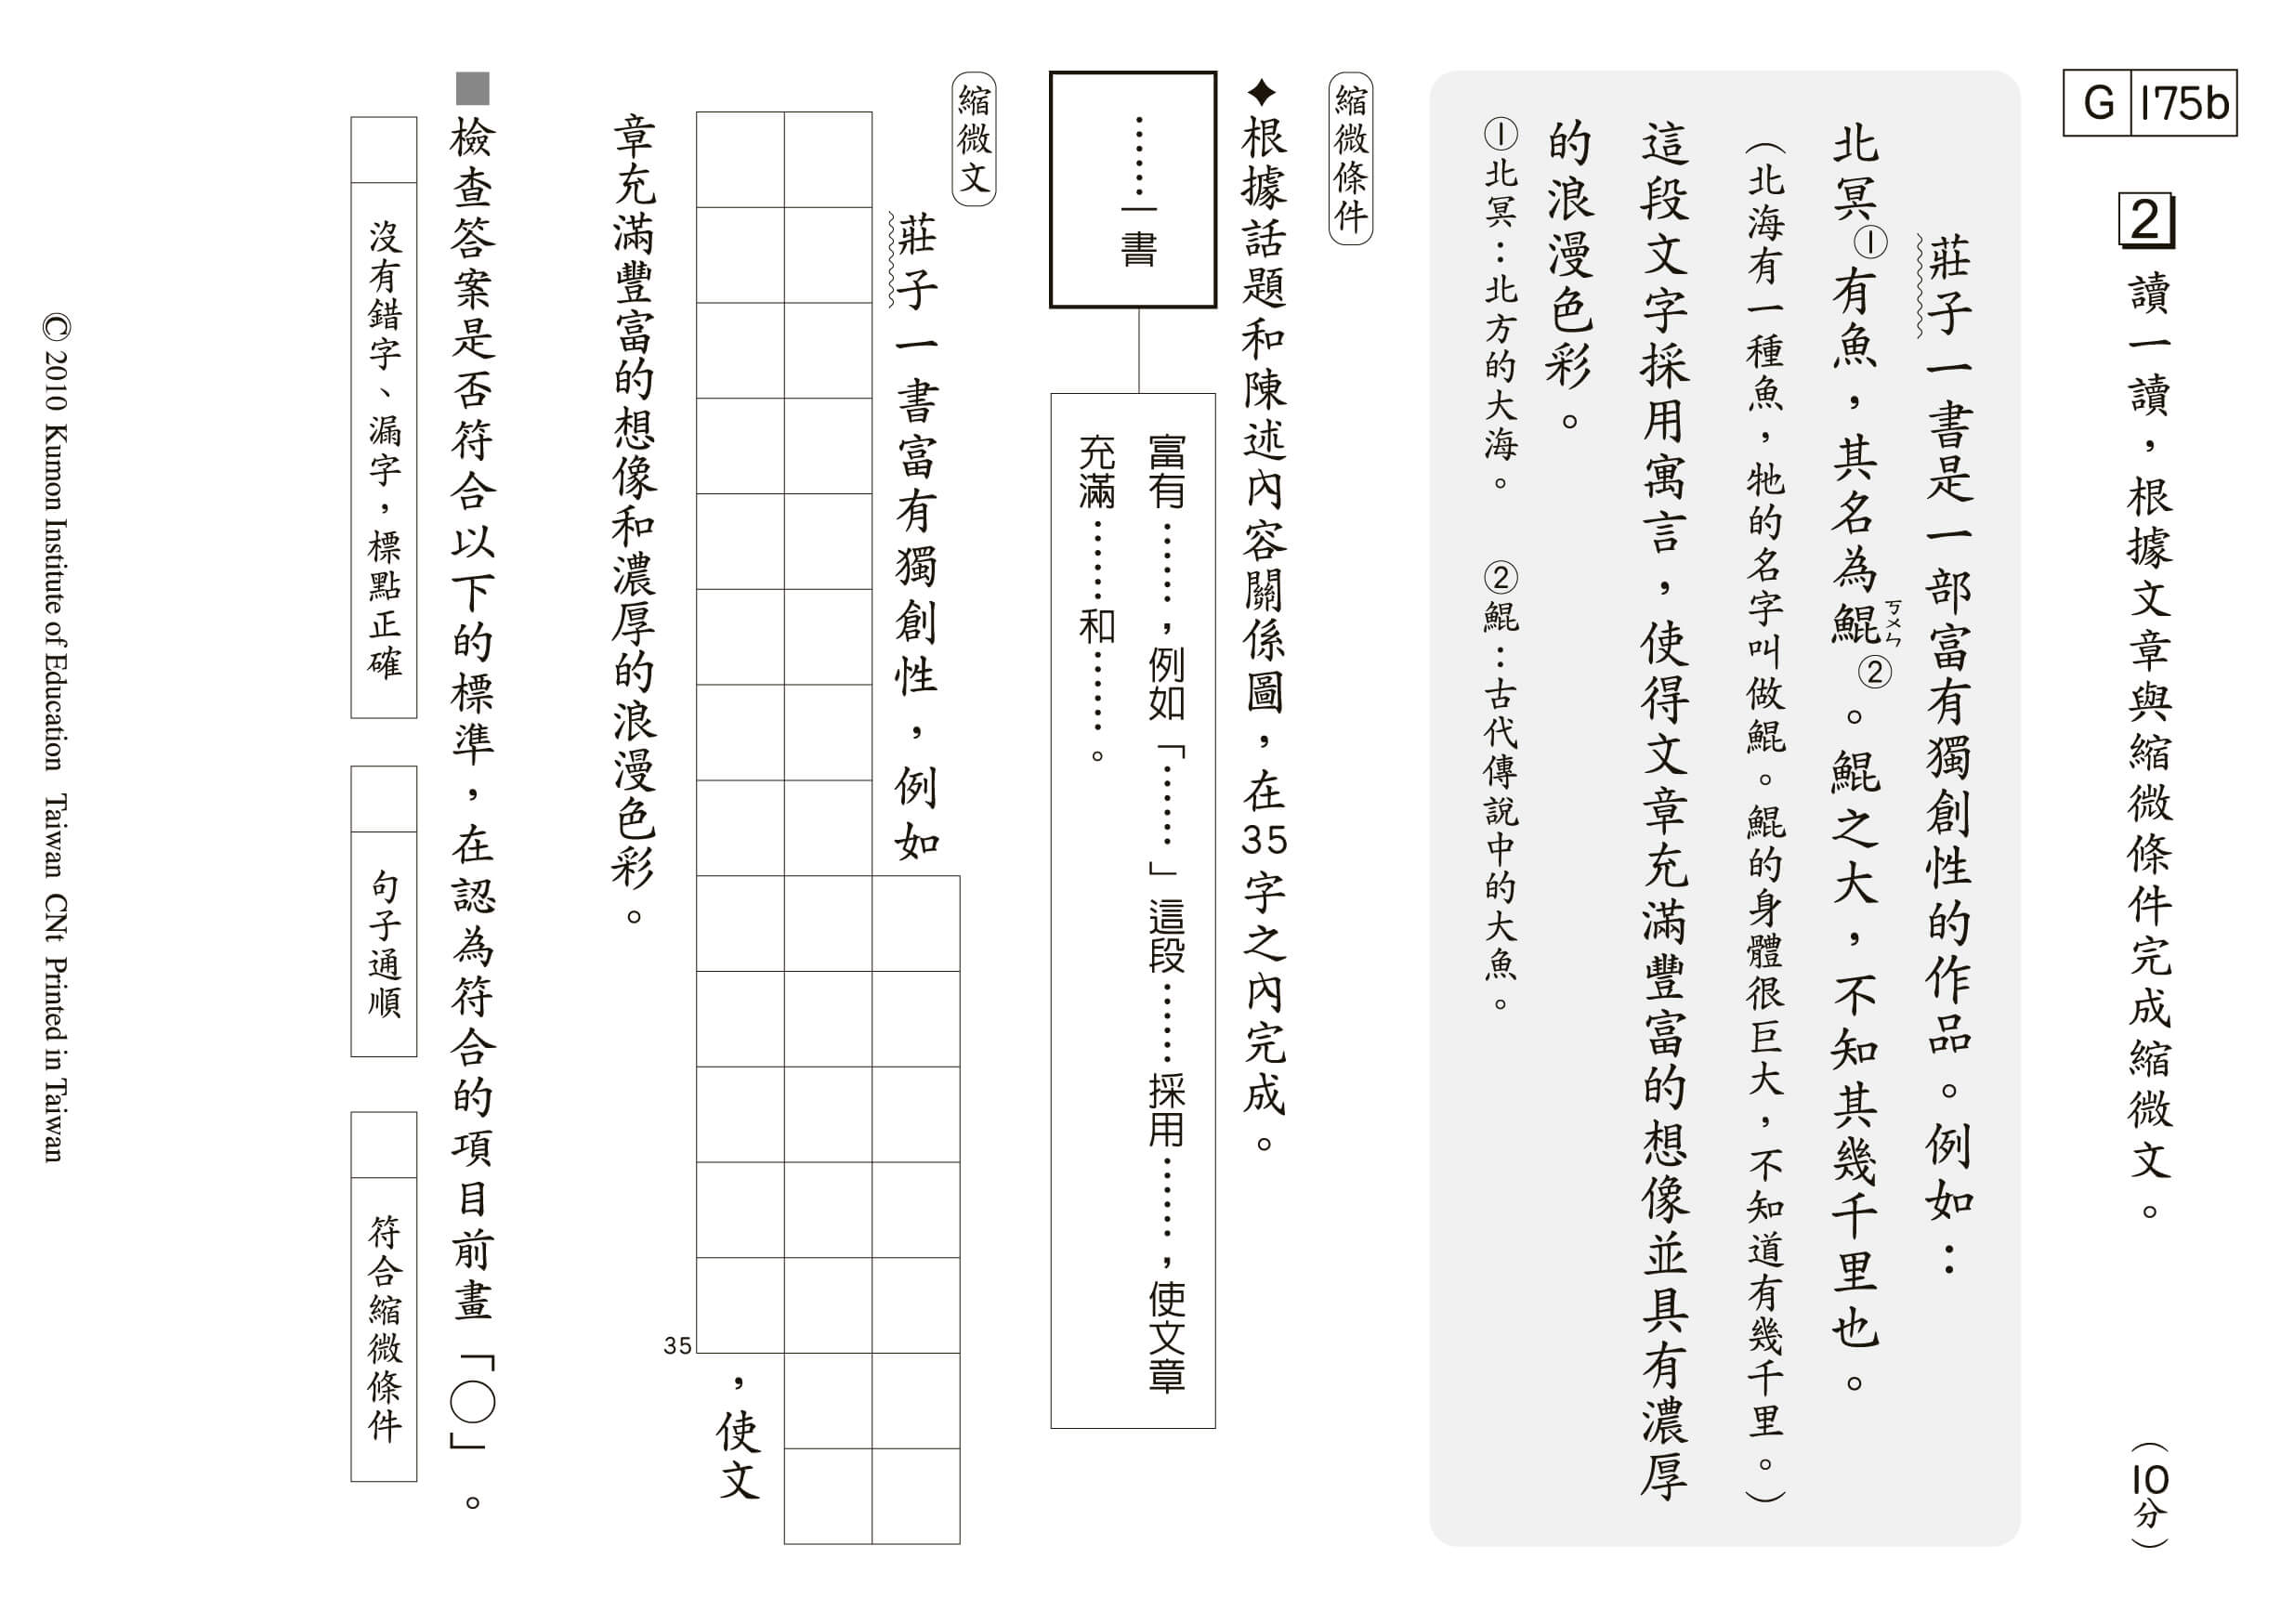 G 175b
2 讀一讀，根據文章與縮微條件完成縮微文。（10分）
莊子一書是一部富有獨創性的作品。例如：
北冥①有魚，其名為鯤ㄎㄨㄣ②。鯤之大，不知其幾千里也。
（北海有一種魚，牠的名字叫做鯤。鯤的身體很巨大，不知道有幾千里。）
這段文字採用寓言，使得文章充滿豐富的想像並具有濃厚
的浪漫色彩。
①北冥：北方的大海。 ②鯤：古代傳說中的大魚。
縮微條件
✦根據話題和陳述內容關係圖，在35字之內完成。
……一書
富有……，例如「……」這段……採用……，使文章
充滿……和……。
縮微文
莊子一書富有獨創性，例如
35
，使文
章充滿豐富的想像和濃厚的浪漫色彩。
■檢查答案是否符合以下的標準，在認為符合的項目前畫「○」。
沒有錯字、漏字，標點正確
句子通順
符合縮微條件
© 2010 Kumon Institute of Education Taiwan CNt Printed in Taiwan